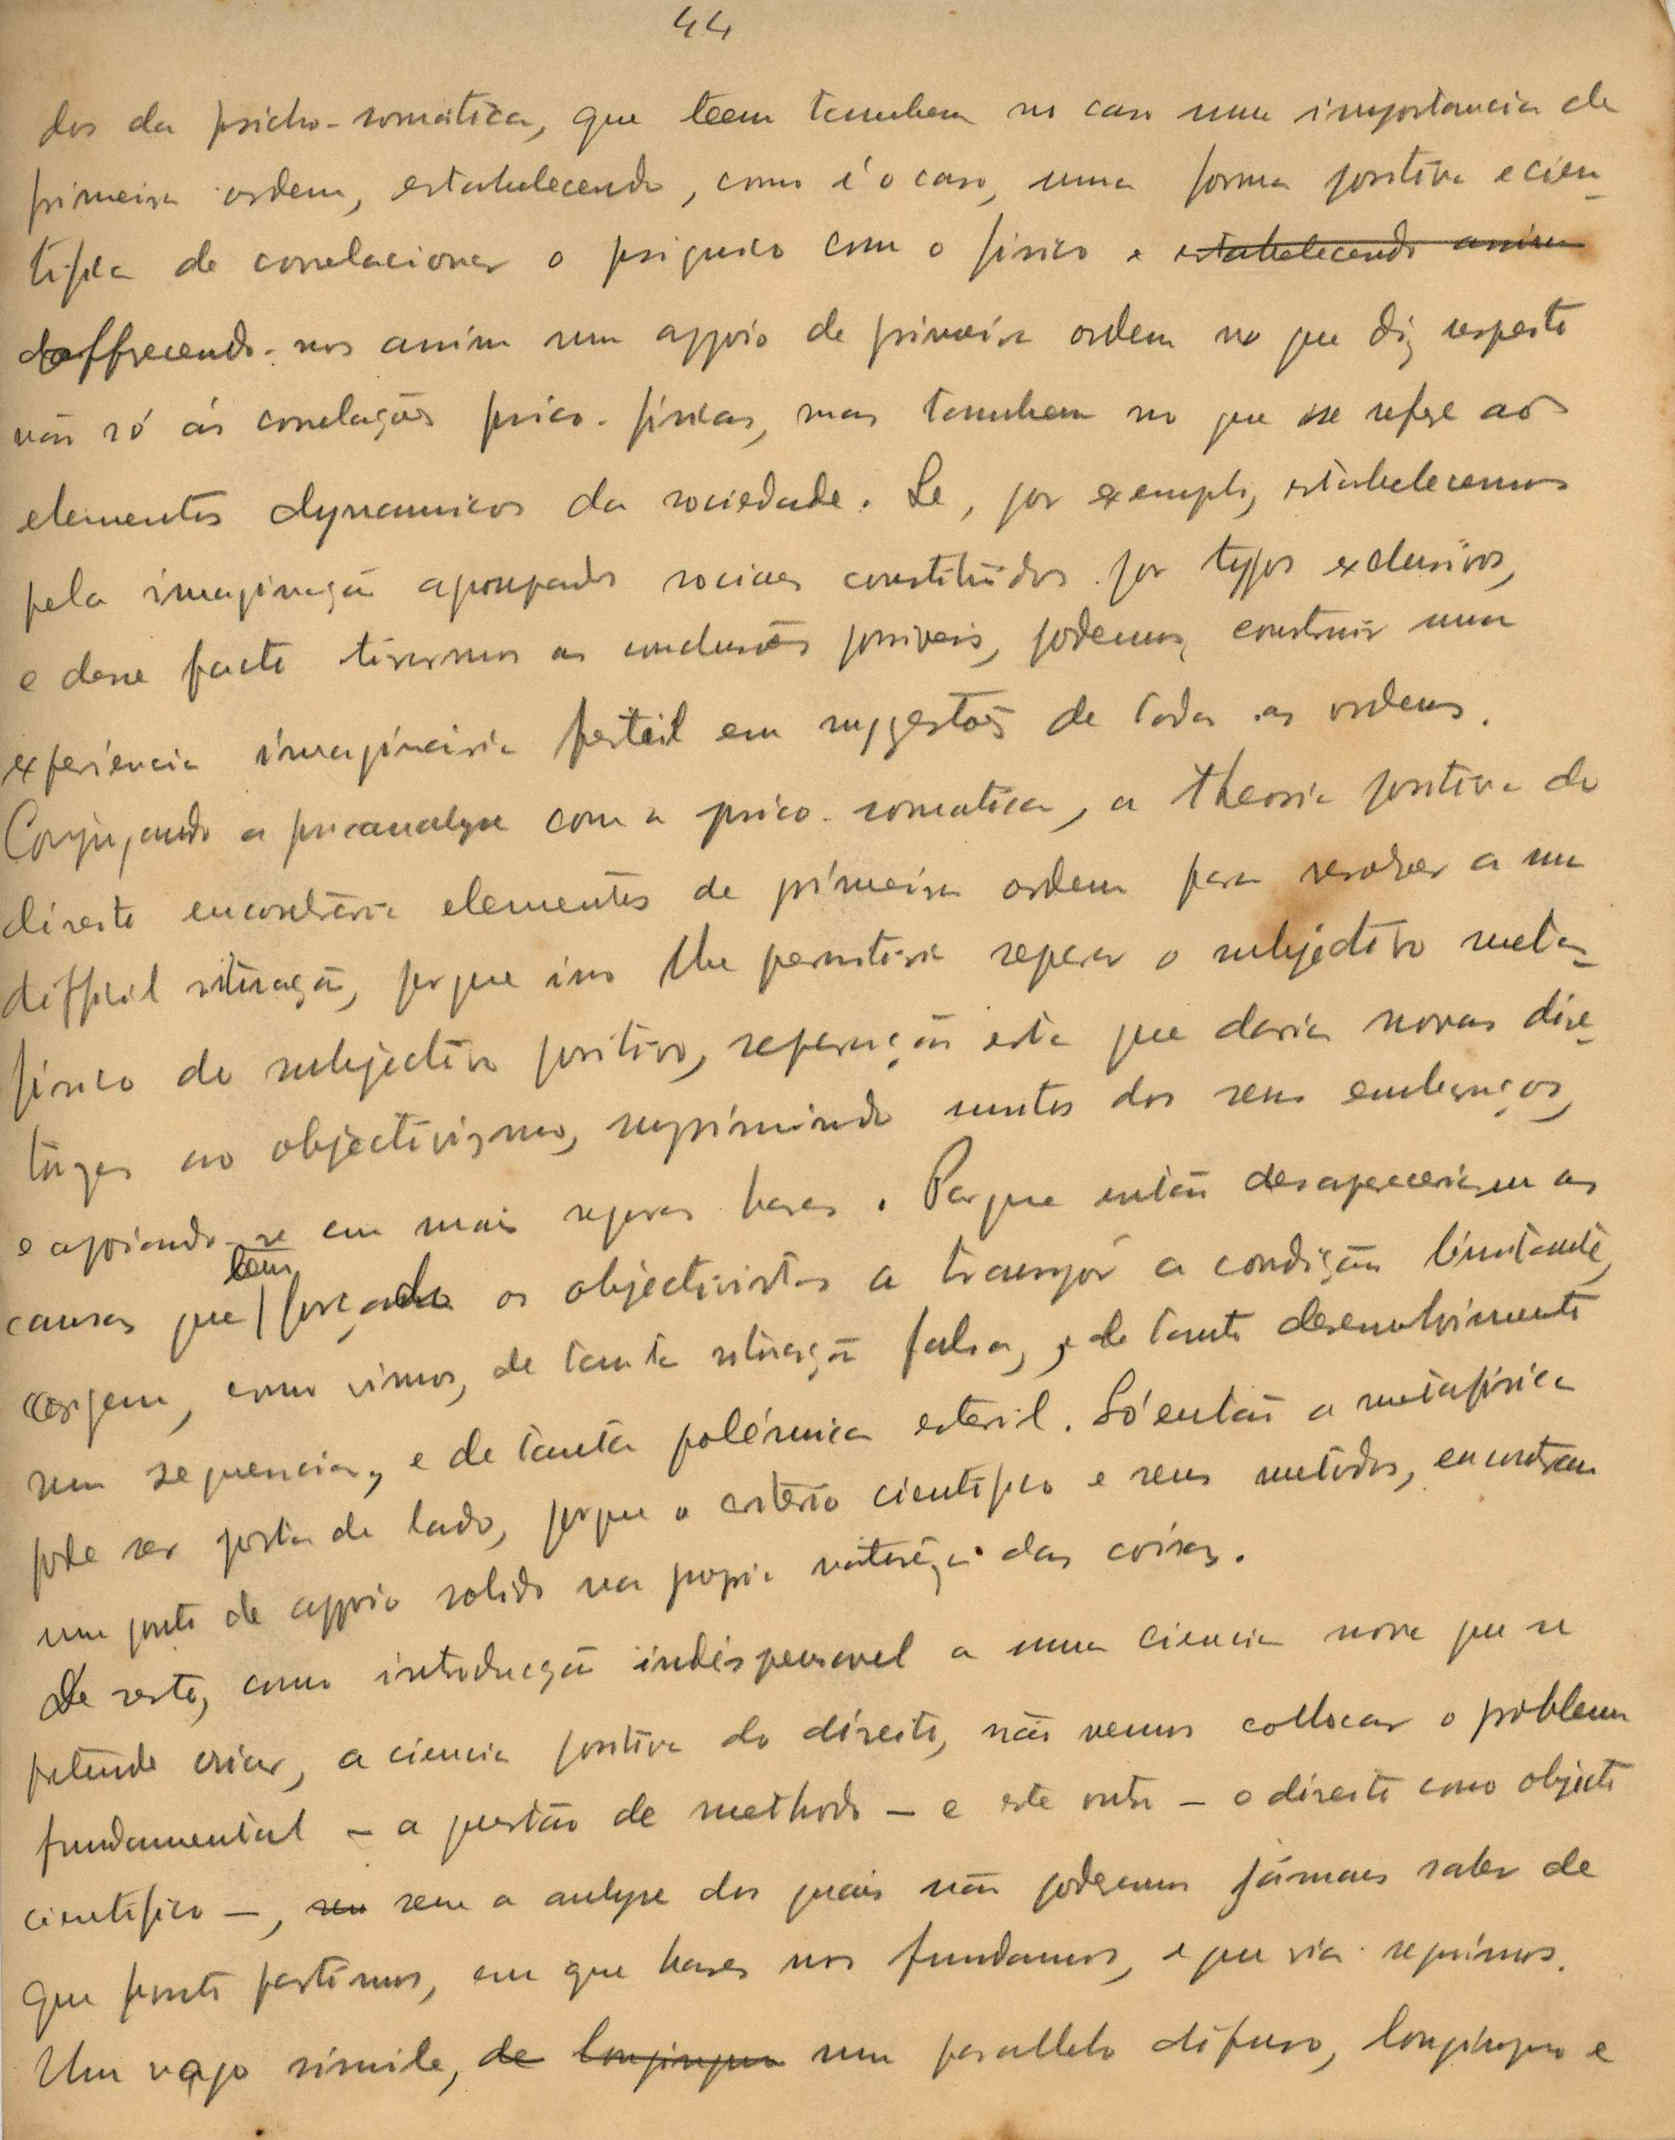 44
dos da psicho-somática, que teem tambem no caso uma importancia de
primeira ordem, estabelecendo, como é o caso, uma forma positiva e cien-
tifica de correlacionar o psiquico com o fisico e estabelecendo assim
offrecendo-nos assim um appoio de primeira ordem no que diz respeito
não só ás correlações psico-fisicas, mas tambem no que se refere aos
elementos dynamicos da sociedade. Se, por exemplo, estabelecermos
pela imaginação agrupados sociaes constituidos por typos exclusivos,
e desse facto tirarmos as conclusões possiveis, podemos construir uma
experiencia imaginaria fertil em suggestões de todas as ordens.
Conjugando a psicanalyse com a psico-somatica, a theoria positiva do
direito encontraria elementos de primeira ordem para resolver a sua
difficil situação, porque isso lhe permitiria separar o subjectivo meta-
fisico do subjectivo positivo, separação esta que daria novas dire-
trizes ao objectivismo, suprimindo muitos dos seus embaraços,
e appoiando-se em mais seguras bases. Porque então desapareceriam as
causas que têm forçado os objectivistas a transpôr a condição limitante,
origem, como vimos, de tanta situação falsa, de tanto desenvolvimento
sem sequencia, e de tanta polémica esteril. Só então a metafisica
pode ser posta de lado, porque o critério cientifico e seus metodos, encontram
um ponto de appoio solido na propria natureza das coisas.
De resto, como introducção indispensavel a uma ciencia nova que se
pretende criar, a ciencia positiva do direito, não vemos collocar o problema
fundamental – a questão de methodo – e este outro – o direito como objecto
cientifico –, sem a analyse dos quais não poderemos jámais saber de
que ponto partimos, em que bases nos fundamos, e que via seguimos.
Um vago simile, de longinquo um parallelo difuso, longinquo e